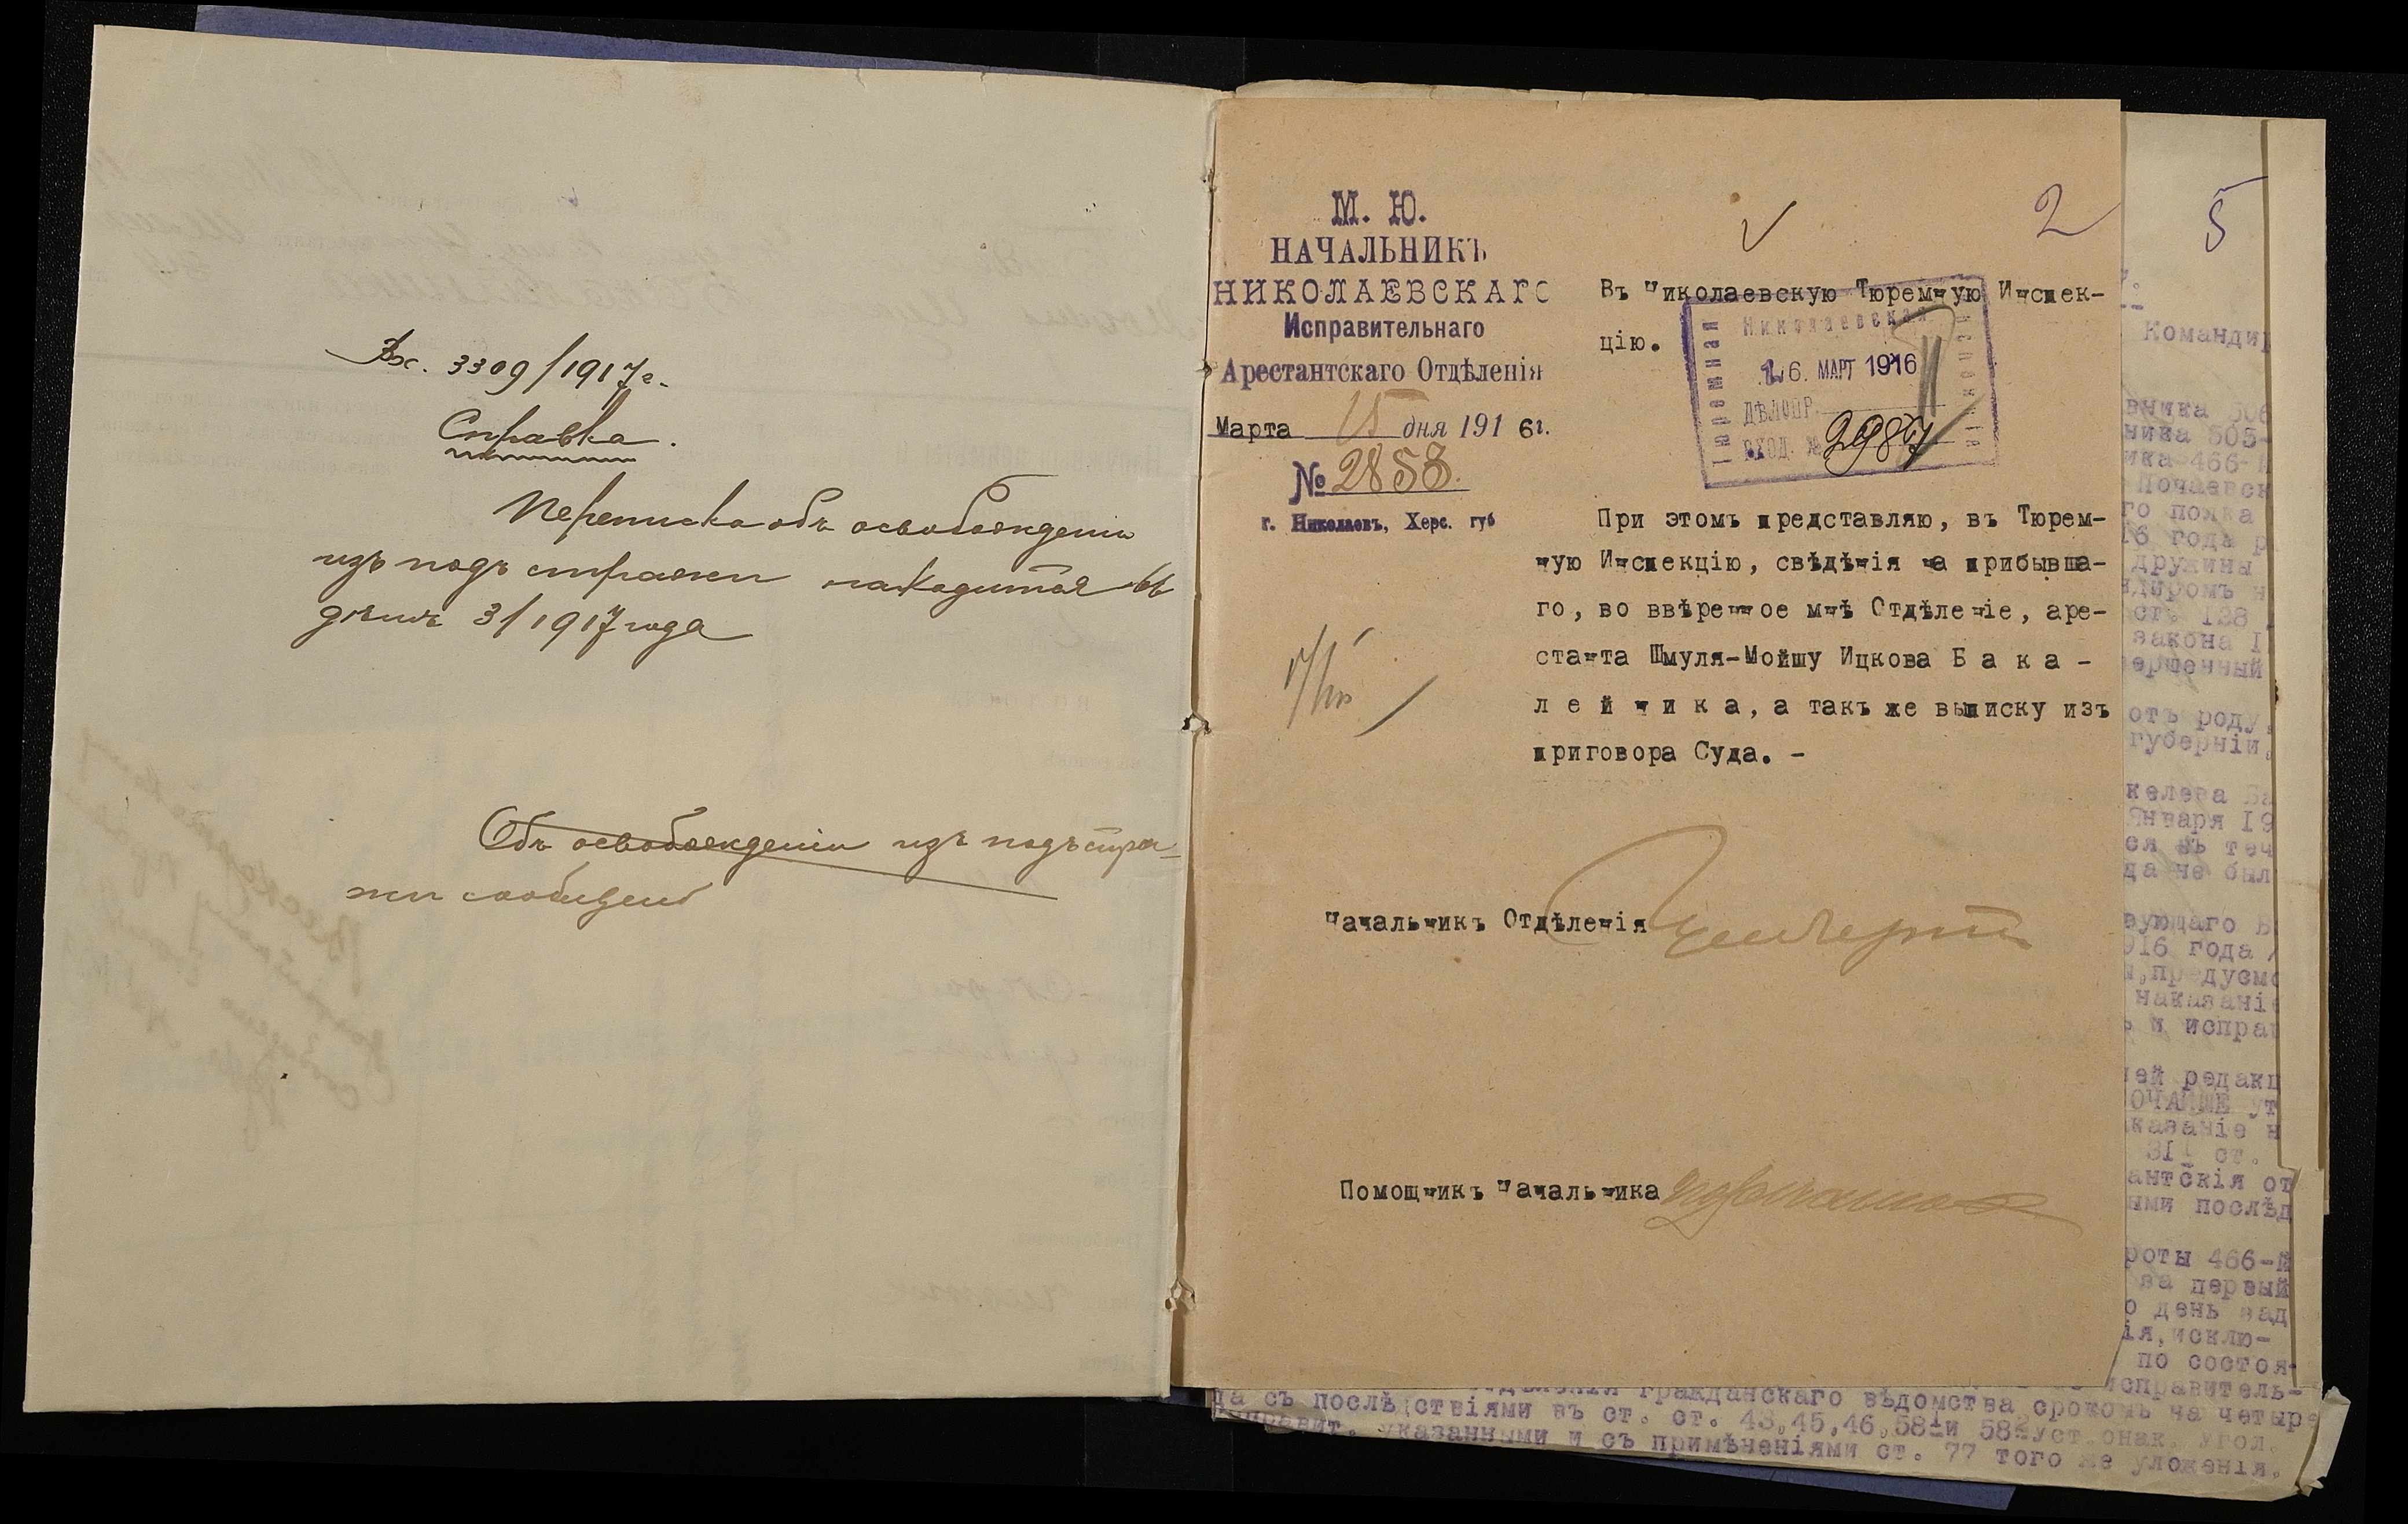 Вх. 3309/1917 г.
Справка.
Переписка объ освобожденіи
изъ подъ стражи находится въ
дѣлѣ 3/1917 года
Объ освобожденіи изъ подъ стра-
жи сообщено
М. Ю.
НАЧАЛЬНИКЪ
НИКОЛАЕВСКАГО
Исправительнаго
Арестантскаго Отдѣленія
Марта 15 дня 1916 г.
№ 2858.
г. Николаевъ, Херс. губ
2
Въ Николаевскую Тюремную Инспек-
цію.
Николаевская
Тюремная
Инспекція
16. МАРТ 1916
ДѢЛОПР.
ВХОД. № 2987
При этомъ представляю, въ Тюрем-
ную Инспекцію, свѣдѣнія на прибывша-
го, во ввѣренное мнѣ Отдѣленіе, аре-
станта Шмуля-Мойшу Ицкова Б а к а -
л е й н и к а, а такъ же выписку изъ
приговора Суда. -
Начальникъ Отдѣленія
Помощникъ Начальника
5
Командир
вника 506
ника 505-
ика 466-й
Почаевск
го полка
16 года р
дружины
ндиромъ н
ст. 128
закона I
ершенный
отъ роду,
губерніи,
келева Ба
Января 19
ся въ теч
да не был
вующаго В
916 года
и,предусмо
наказаніе
ь и исправ
ей редакц
ОЧАЙШЕ ут
казаніе н
311 ст.
антскія от
ыми послѣд
роты 466-й
за первый
о день зад
ія,исклю-
по состоя-
исправитель-
гражданскаго вѣдомства срокомъ на четыре
да съ послѣдствіями въ ст. ст. 43,45,46,58¹и 58² уст.онак. Угол.
исправит. указанными и съ примѣненіями ст. 77 того же уложенія.